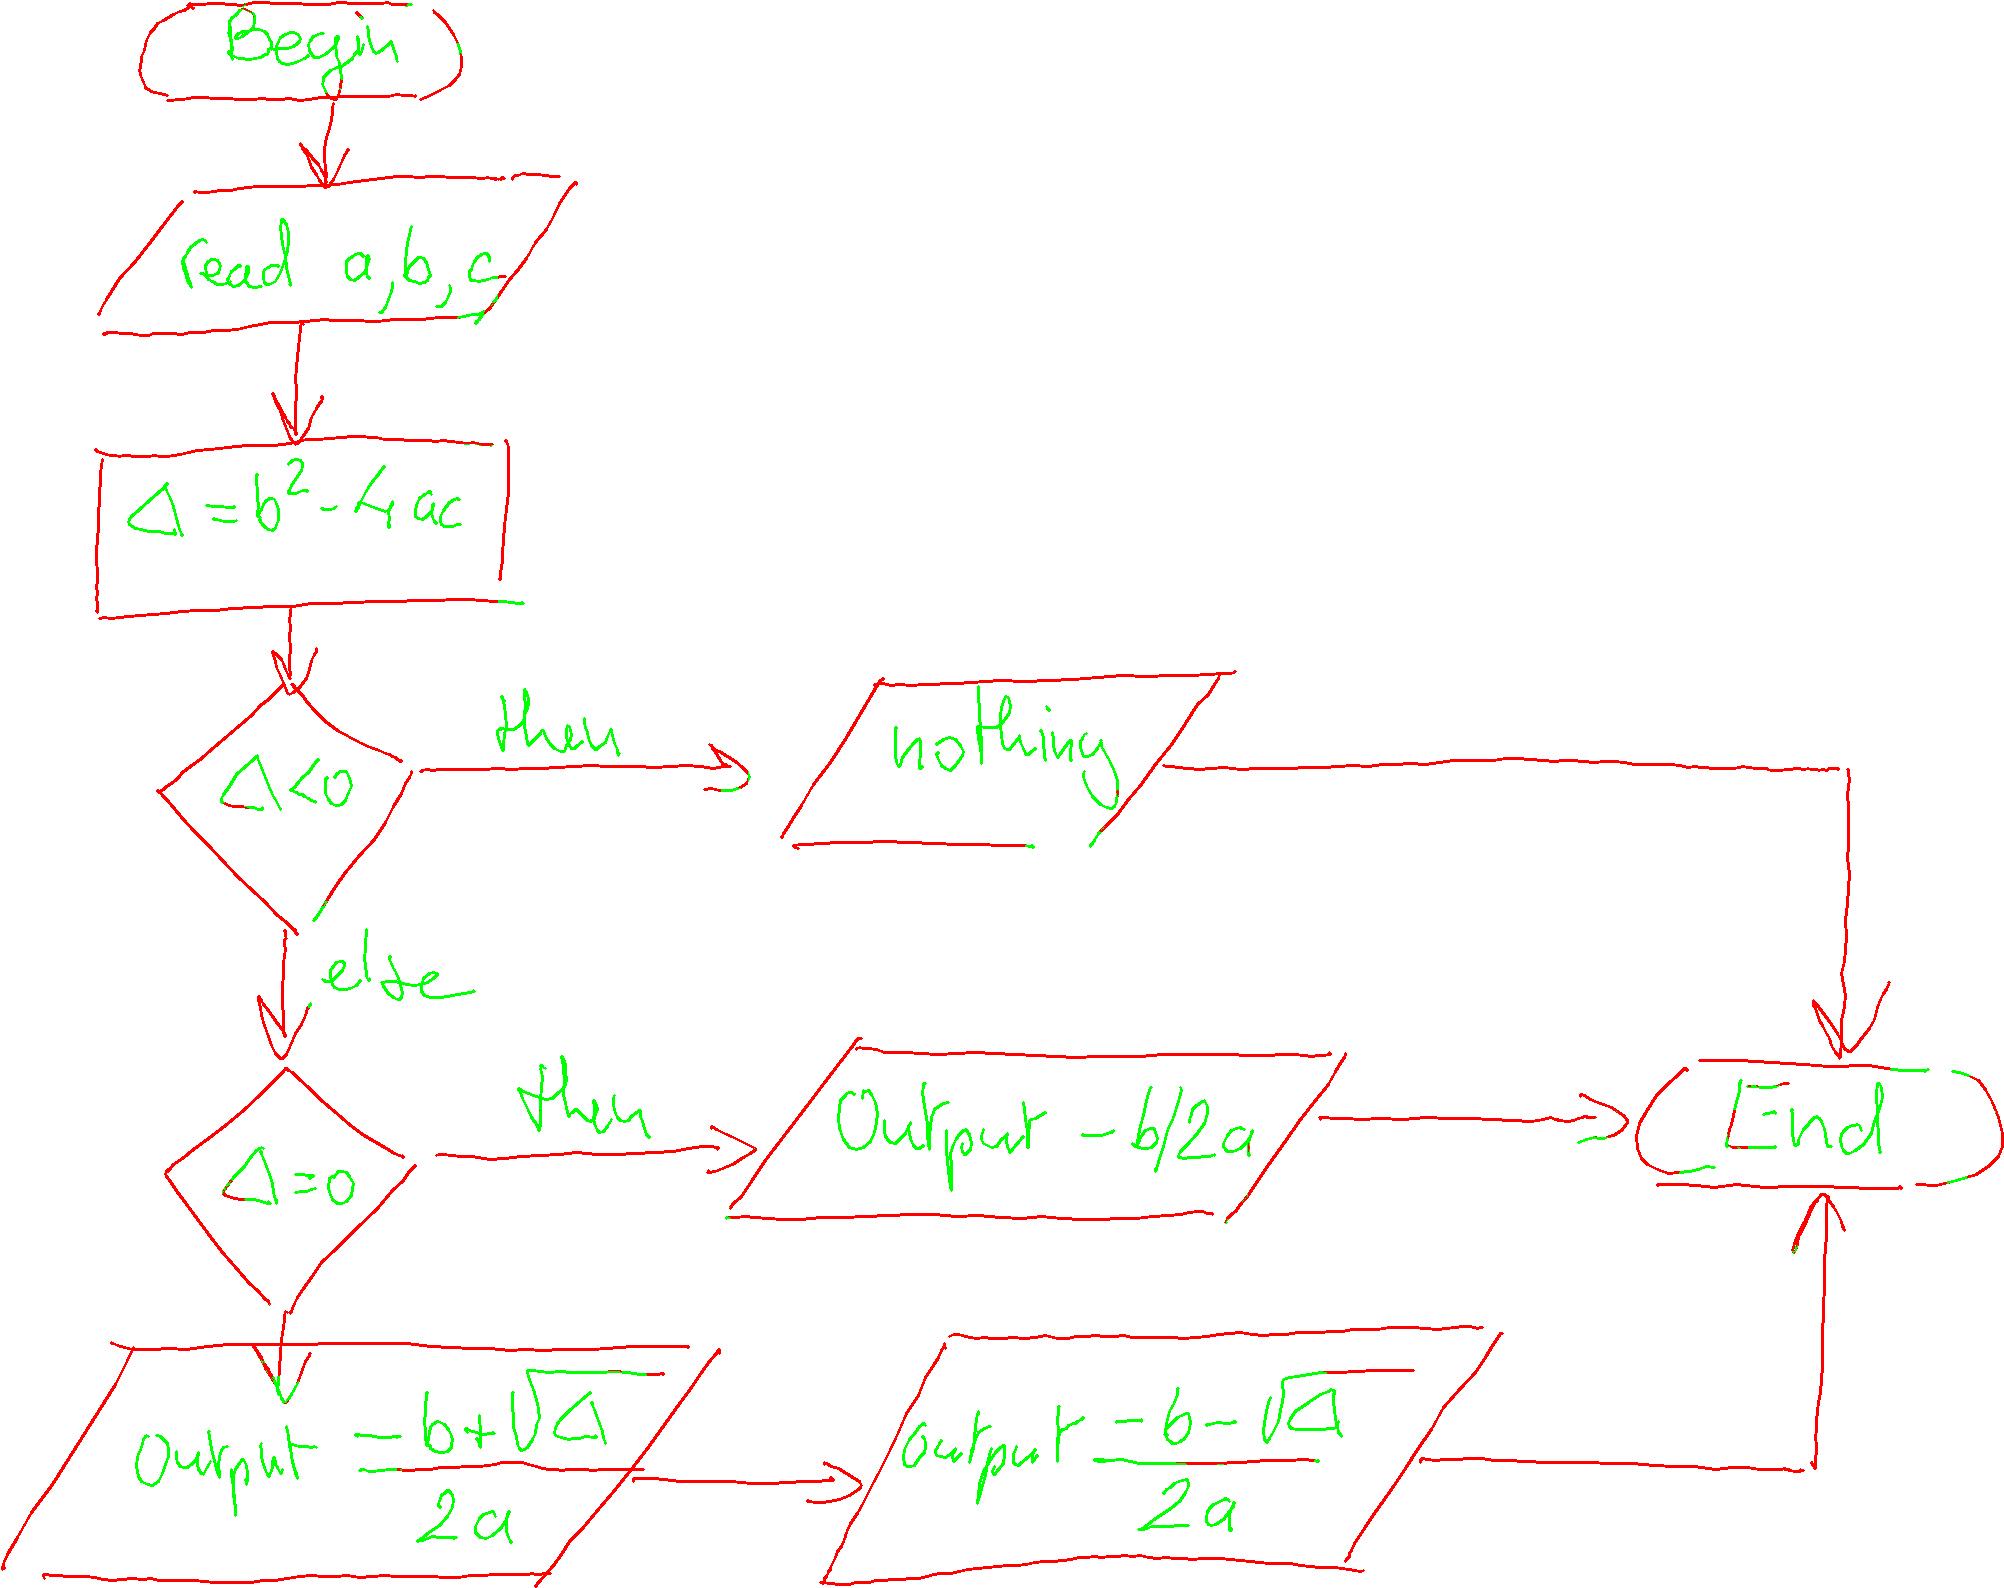 Begin
read a, b, c
Δ = b² - 4ac
then
nothing
Δ<0
else
then
Output - b/2a
End
Δ=0
Output (-b+√Δ)/2a
output (-b-√Δ)/2a